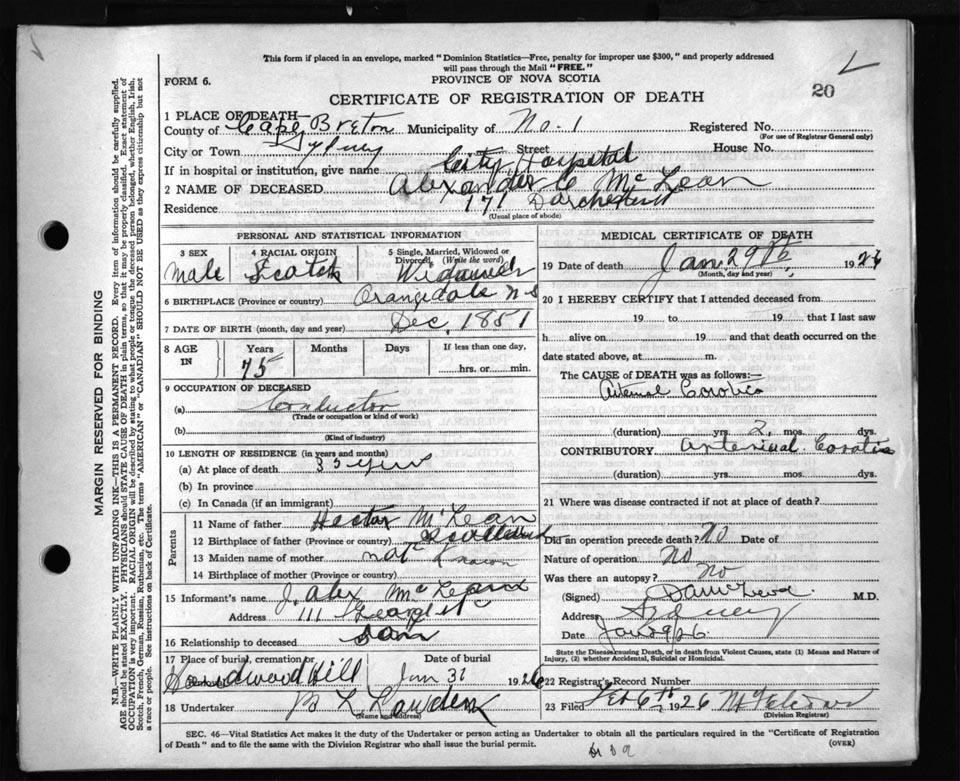 This form if placed in an envelope, marked "Dominion Statistics—Free, penalty for improper use $300," and properly addressed
will pass through the Mail "FREE."
FORM 6.
PROVINCE OF NOVA SCOTIA
20
CERTIFICATE OF REGISTRATION OF DEATH
1 PLACE OF DEATH
County of Cape Breton Municipality of No. 1 Registered No.
(For use of Registrar General only)
City or Town Sydney Street House No.
If in hospital or institution, give name City Hospital
2 NAME OF DECEASED Alexander C McLean
Residence 171 Dorchester
(Usual place of abode)
PERSONAL AND STATISTICAL INFORMATION
3 SEX 4 RACIAL ORIGIN 5 Single, Married, Widowed or
Divorced (Write the word)
Male Scotch Widowed
6 BIRTHPLACE (Province or country) Orangedale N S
7 DATE OF BIRTH (month, day and year) Dec. 1851
8 AGE IN Years Months Days If less than one day,
75 hrs. or min.
9 OCCUPATION OF DECEASED
(a) Conductor
(Trade or occupation or kind of work)
(b)
(Kind of industry)
10 LENGTH OF RESIDENCE (in years and months)
(a) At place of death 35 years
(b) In province
(c) In Canada (if an immigrant)
Parents
11 Name of father Hector McLean
12 Birthplace of father (Province or country) Scotland
13 Maiden name of mother not known
14 Birthplace of mother (Province or country)
15 Informant's name J. Alex McLean
Address 111 George St
16 Relationship to deceased Son
17 Place of burial, cremation or Date of burial
Hardwood Hill Jan 31 1926
18 Undertaker
(Name and address)
MEDICAL CERTIFICATE OF DEATH
19 Date of death Jan. 29th, 1926
(Month, day and year)
20 I HEREBY CERTIFY that I attended deceased from
19 to 19 that I last saw
h alive on 19 and that death occurred on the
date stated above, at m.
The CAUSE of DEATH was as follows:—
(duration) yrs. 2 mos. dys.
CONTRIBUTORY
(duration) yrs. mos. dys.
21 Where was disease contracted if not at place of death?
Did an operation precede death? No Date of
Nature of operation No
Was there an autopsy? No
(Signed) M.D.
Address Sydney
Date Jan 29/26
State the Disease causing Death, or in death from Violent Causes, state (1) Means and Nature of
Injury, (2) whether Accidental, Suicidal or Homicidal.
22 Registrar's Record Number
23 Filed Feb 6th 1926
(Division Registrar)
SEC. 46—Vital Statistics Act makes it the duty of the Undertaker or person acting as Undertaker to obtain all the particulars required in the "Certificate of Registration
of Death" and to file the same with the Division Registrar who shall issue the burial permit.
(OVER)
MARGIN RESERVED FOR BINDING
N.B.—WRITE PLAINLY WITH UNFADING INK—THIS IS A PERMANENT RECORD. Every item of information should be carefully supplied.
AGE should be stated EXACTLY. PHYSICIANS should STATE CAUSE OF DEATH in plain terms, so that it may be properly classified. Exact statement of
OCCUPATION is very important. RACIAL ORIGIN will be described by stating to what people or tongue the deceased person belonged, whether English, Irish,
Scotch, French, German, Russian, Ruthenian, etc. The terms "AMERICAN" or "CANADIAN" SHOULD NOT BE USED as they express citizenship but not
a race or people. See instructions on back of Certificate.